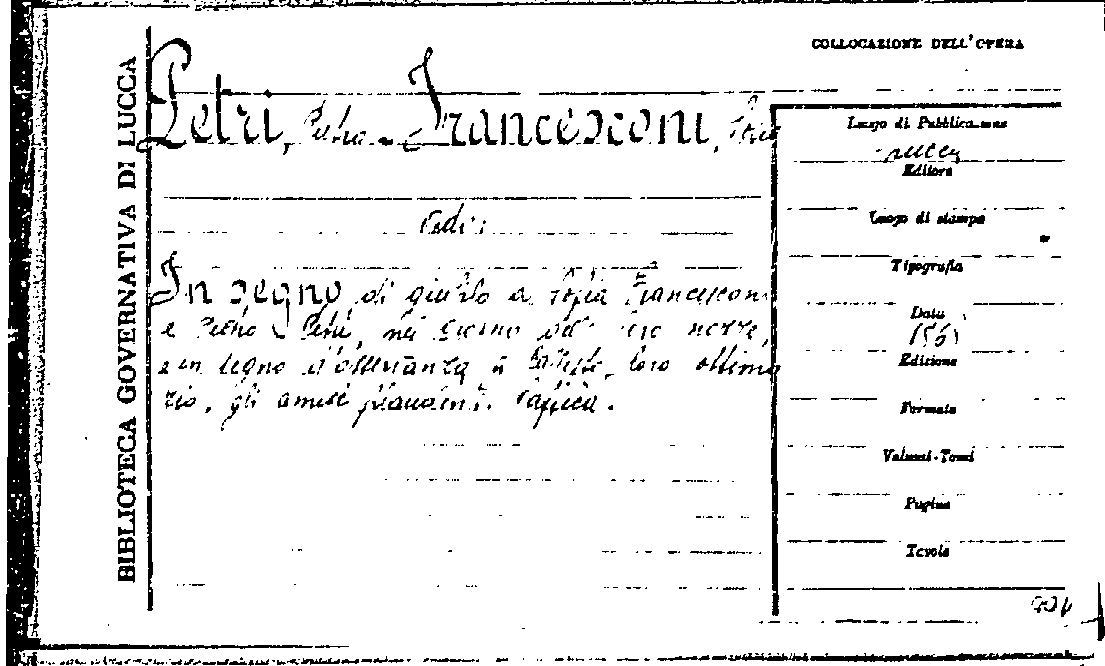 COLLOCAZIONE DELL'OPERA
BIBLIOTECA GOVERNATIVA DI LUCCA
Petri, Pietro e Francesconi,
Vedi:
In segno di giubilo a Sofia Francesconi
e Pietro Petri, nel giorno delle loro nozze,
e in segno d'osservanza a loro ottimo
zio, gli amici plaudenti.
Luogo di Pubblicazione
Lucca
Editore
Luogo di stampa
Tipografia
Data
Edizione
Formato
Volumi-Tomi
Pagine
Tavole